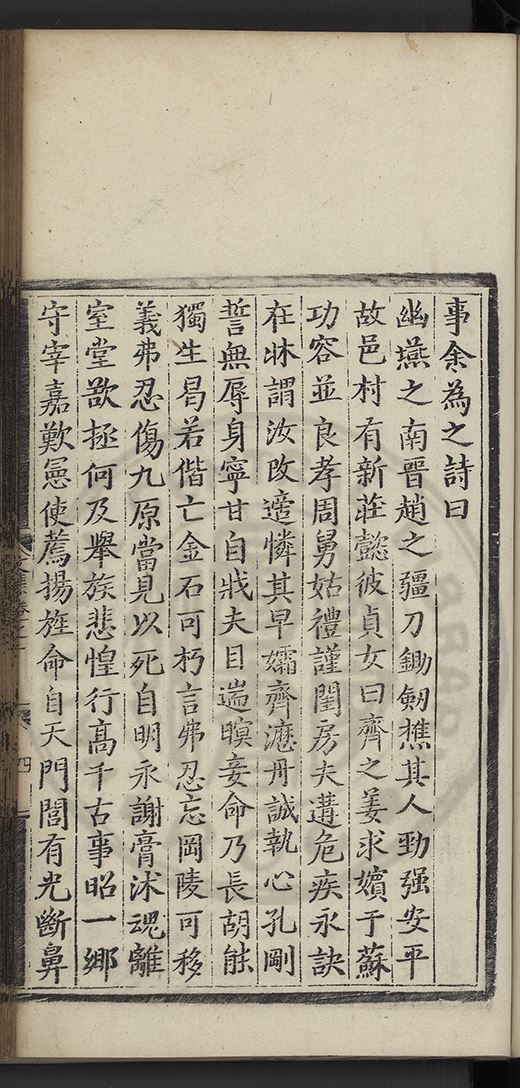 事余為之詩曰
幽燕之南晉趙之疆刀鋤劒樵其人勁强安平
故邑村有新莊懿彼貞女曰齊之姜求嬪于蘇
功容並良孝周舅姑禮謹閨房夫遘危疾永訣
在牀謂汝改適憐其早孀齊瀝丹誠執心孔剛
誓無辱身寧甘自戕夫目遄瞑妾命乃長胡能
獨生曷若偕亡金石可朽言弗忍忘岡陵可移
義弗忍傷九原當見以死自明永謝膏沐魂離
室堂歘拯何及舉族悲惶行高千古事昭一鄉
守宰嘉歎憲使薦揚旌命自天門閭有光斷鼻
四